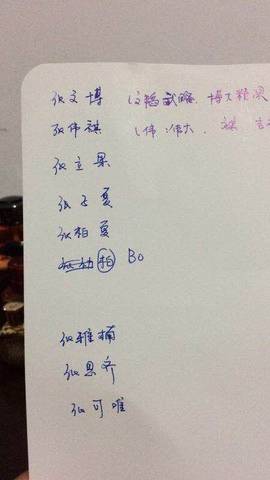 张文博 (文韬武略, 博大精深
张伟祺 (伟:伟大, 祺 吉
张立果
张子夏
张柏夏
柏 Bo
张雅楠
张思齐
张可唯